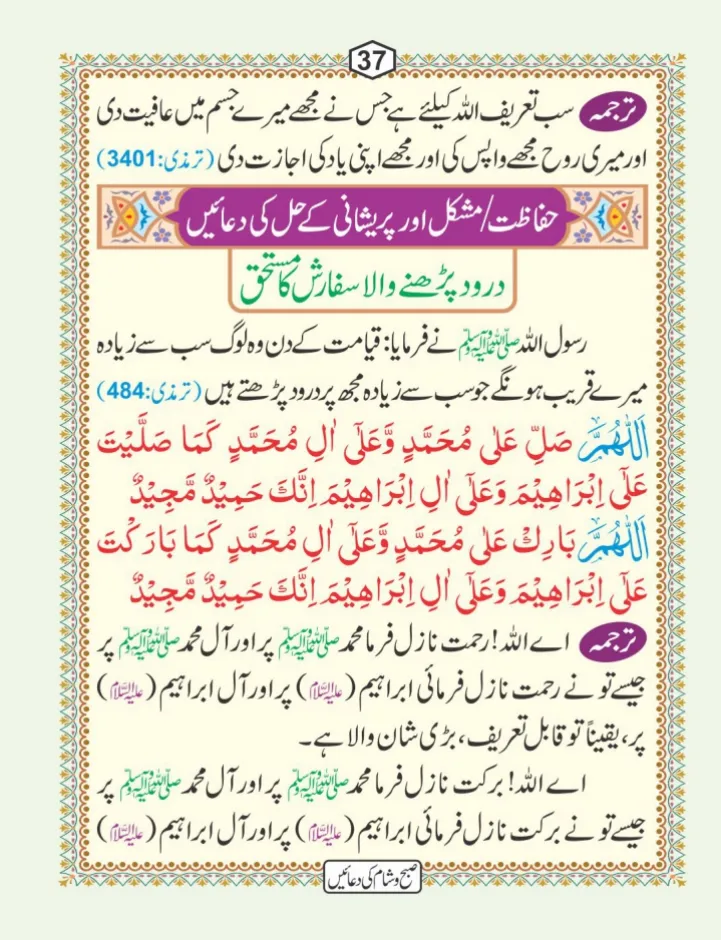 37
ترجمہ سب تعریف اللہ کیلئے ہے جس نے مجھے میرے جسم میں عافیت دی
اور میری روح مجھے واپس کی اور مجھے اپنی یاد کی اجازت دی (ترمذی:3401)
حفاظت/مشکل اور پریشانی کے حل کی دعائیں
درود پڑھنے والا سفارش کا مستحق
رسول اللہ صلی اللہ علیہ وآلہ وسلم نے فرمایا: قیامت کے دن وہ لوگ سب سے زیادہ
میرے قریب ہونگے جو سب سے زیادہ مجھ پر درود پڑھتے ہیں (ترمذی:484)
اَللّٰهُمَّ صَلِّ عَلٰى مُحَمَّدٍ وَّعَلٰٓى اٰلِ مُحَمَّدٍ كَمَا صَلَّيْتَ
عَلٰٓى اِبْرَاهِيْمَ وَعَلٰٓى اٰلِ اِبْرَاهِيْمَ اِنَّكَ حَمِيْدٌ مَّجِيْدٌ
اَللّٰهُمَّ بَارِكْ عَلٰى مُحَمَّدٍ وَّعَلٰٓى اٰلِ مُحَمَّدٍ كَمَا بَارَكْتَ
عَلٰٓى اِبْرَاهِيْمَ وَعَلٰٓى اٰلِ اِبْرَاهِيْمَ اِنَّكَ حَمِيْدٌ مَّجِيْدٌ
ترجمہ اے اللہ! رحمت نازل فرما محمد صلی اللہ علیہ وآلہ وسلم پر اور آل محمد صلی اللہ علیہ وآلہ وسلم پر
جیسے تو نے رحمت نازل فرمائی ابراہیم (علیہ السلام) پر اور آل ابراہیم (علیہ السلام)
پر، یقیناً تو قابل تعریف، بڑی شان والا ہے۔
اے اللہ! برکت نازل فرما محمد صلی اللہ علیہ وآلہ وسلم پر اور آل محمد صلی اللہ علیہ وآلہ وسلم پر
جیسے تو نے برکت نازل فرمائی ابراہیم (علیہ السلام) پر اور آل ابراہیم (علیہ السلام)
صبح و شام کی دعائیں